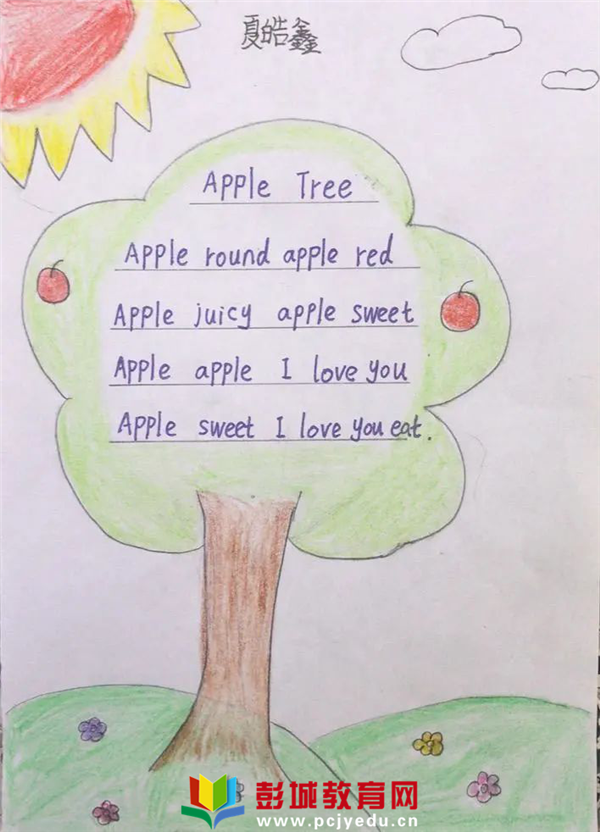 夏皓鑫
Apple Tree
Apple round apple red
Apple juicy apple sweet
Apple apple I love you
Apple sweet I love you eat.
彭城教育网
www.pcjyedu.cn